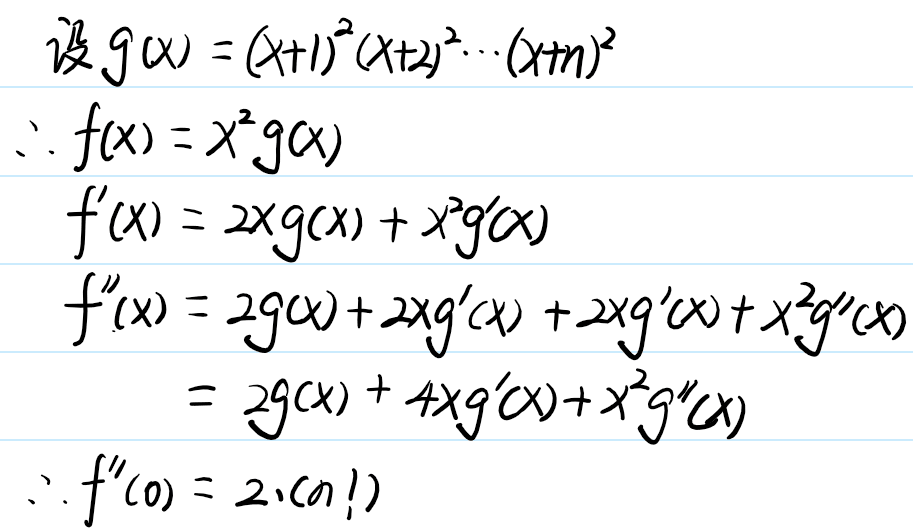 设 g(x) = (x+1)²(x+2)²⋯(x+n)²
∴ f(x) = x²g(x)
f′(x) = 2xg(x) + x²g′(x)
f″(x) = 2g(x) + 2xg′(x) + 2xg′(x) + x²g″(x)
= 2g(x) + 4xg′(x) + x²g″(x)
∴ f″(0) = 2·(n!)